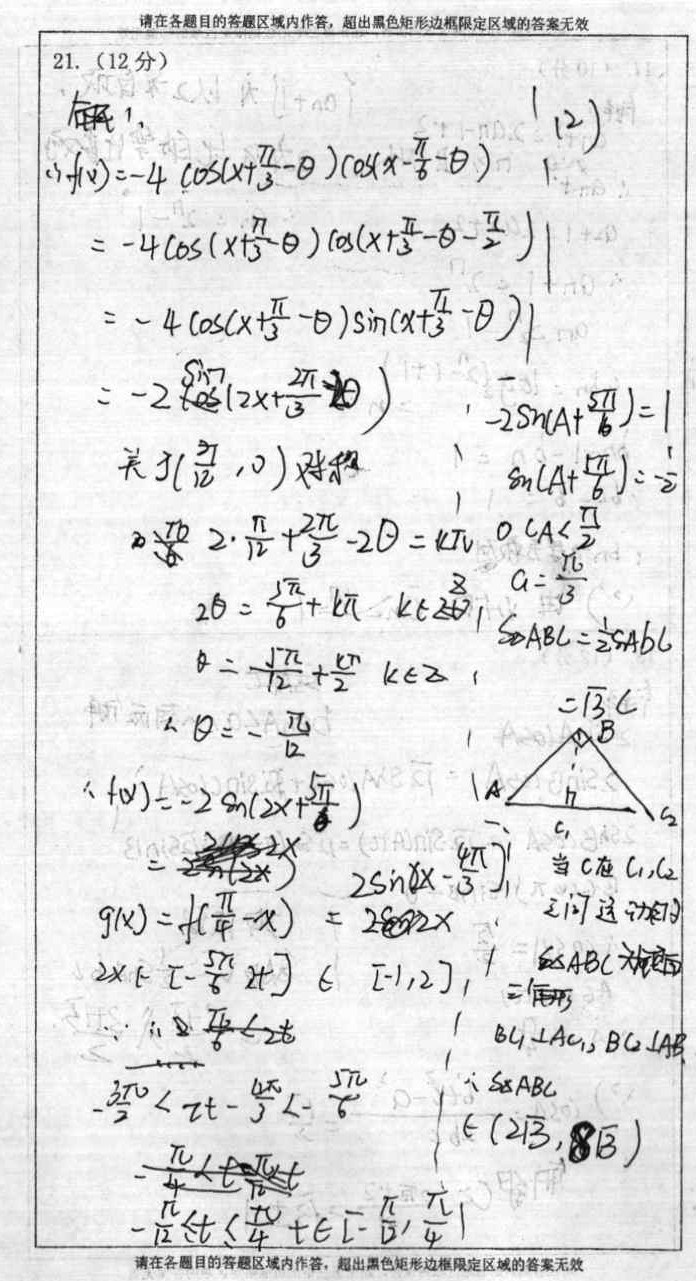 请在各题目的答题区域内作答，超出黑色矩形边框限定区域的答案无效
21.（12分）
解 1.
∴f(x)=-4 cos(x+π/3-θ)cos(x-π/6-θ)
=-4cos(x+π/3-θ)cos(x+π/3-θ-π/2)
=-4cos(x+π/3-θ)sin(x+π/3-θ)
=-2 sin(2x+2π/3-2θ)
关于(π/12,0)对称
2·π/12+2π/3-2θ=kπ
2θ=5π/6+kπ k∈Z
θ=5π/12+kπ/2 k∈Z
∴θ=-π/12
∴f(x)=-2sin(2x+5π/6)
2sin(2x-4π/3)
g(x)=f(π/4-x)=
2x∈[-5π/6 2t] ∈ [-1,2]
-3π/2<2t-4π/3<-5π/6
-π/12≤t≤π/4 t∈[-π/12,π/4]
(2)
-2Sin(A+5π/6)=1
Sin(A+5π/6)=-1/2
0<A<π/2
a=π/3
S△ABC=1/2SAbC
=√3C
B
A
C₁
C₂
当C在C₁,C₂
之间运动时
△ABC为锐角
三角形
BC₁⊥AC₁,BC₂⊥AB
∴S△ABC
∈(2√3,8√3)
请在各题目的答题区域内作答，超出黑色矩形边框限定区域的答案无效